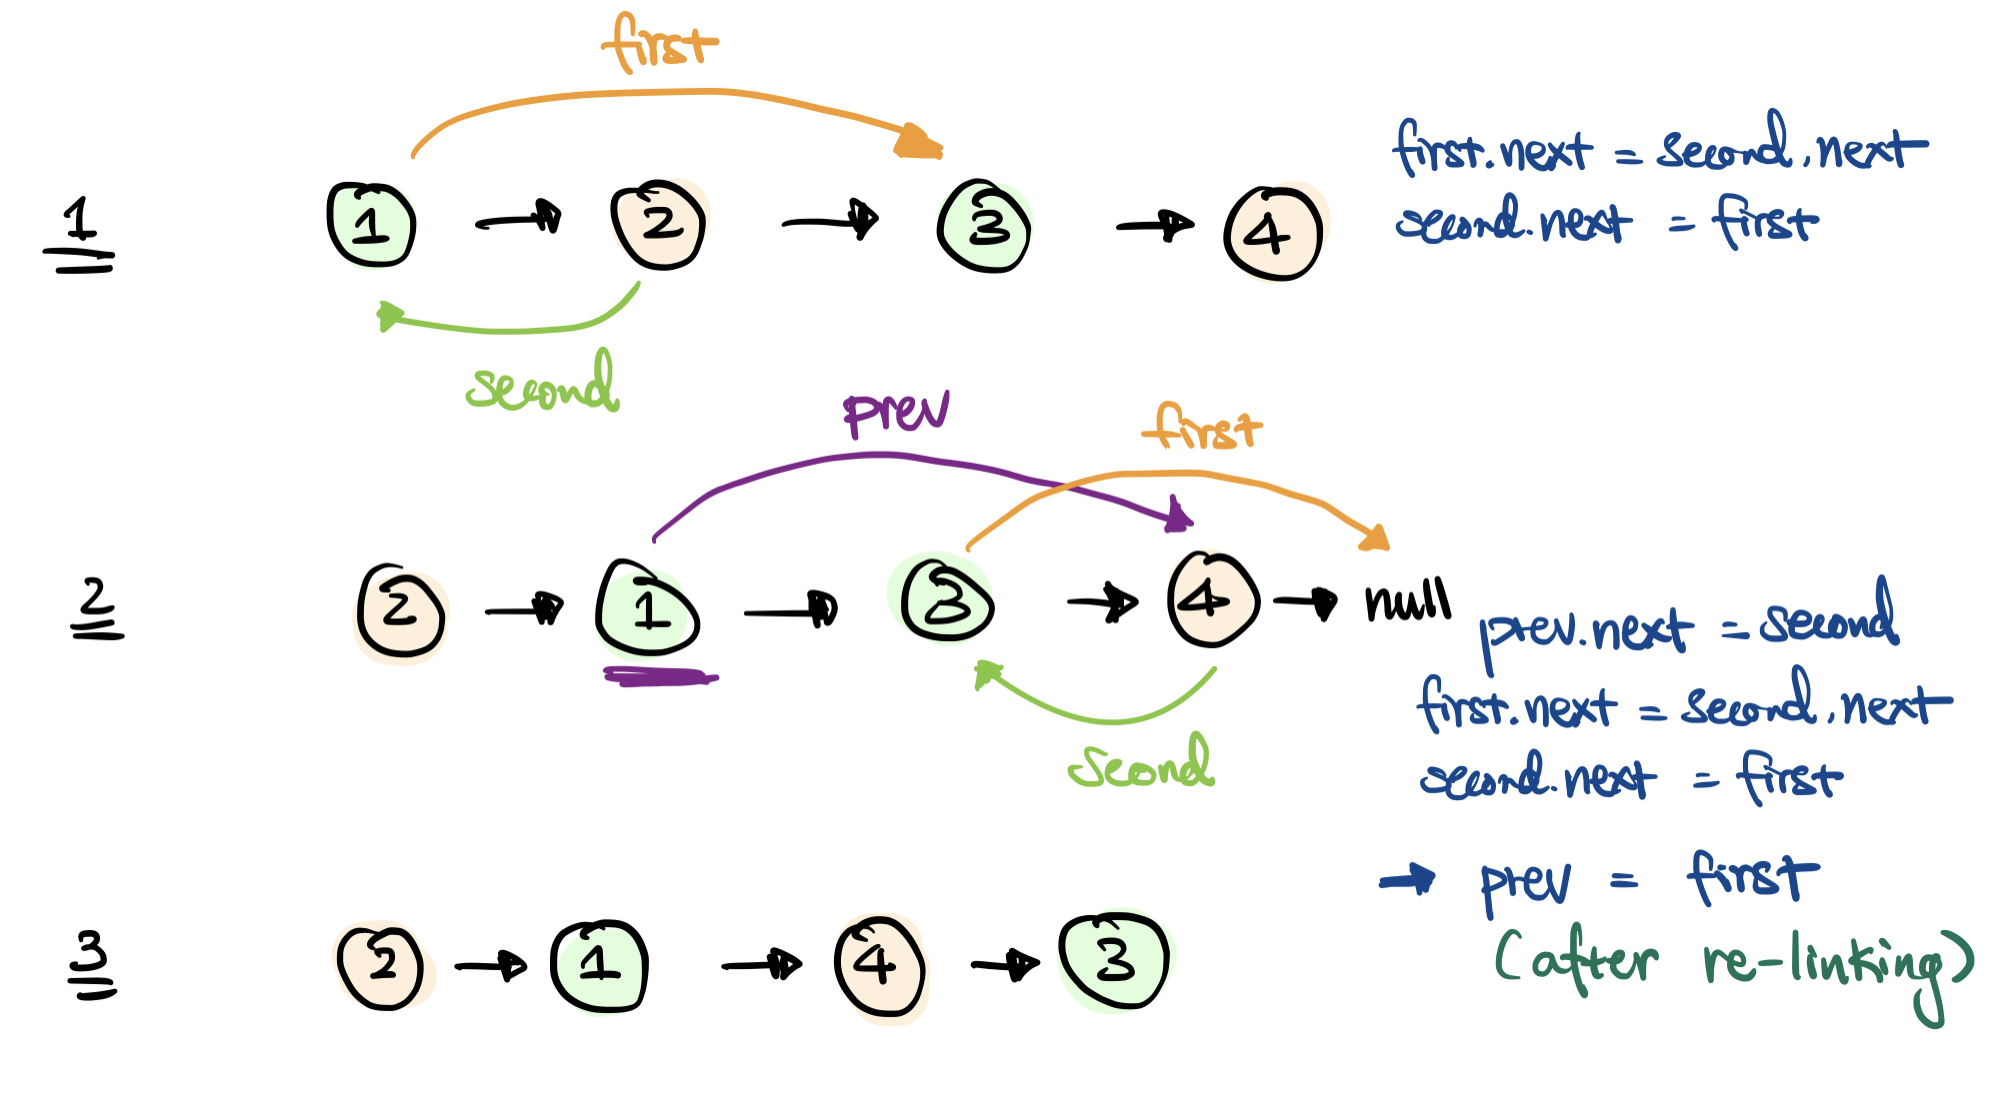 first
1
1 → 2 → 3 → 4
first.next = second.next
second.next = first
second
prev
first
2
2 → 1 → 3 → 4 → null
prev.next = second
first.next = second.next
second.next = first
second
→ prev = first
(after re-linking)
3
2 → 1 → 4 → 3